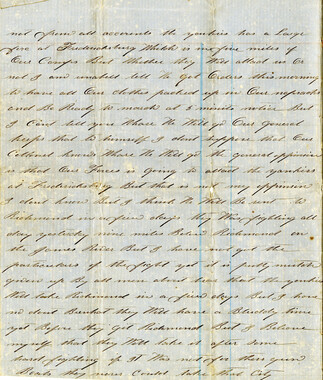 not from all accounts the yankies has a Large
fire at Fredericksburg Which is in five miles of
Our Camps But Whether they Will attact us Or
not I am unabell tell to get Orders this morning
to have all Our clothes packed up in Our napsacks
and Be Ready to march at 5 minits notice But
I Cant tell you Whare We Will go Our general
keeps that to himself I dont suppose that Our
Colonel knows Whare We Will go the general oppinion
is that Our Forces is going to attact the yankies
at Fredericksburg But that is not my oppinion
I dont know But I think We Will Be sent to
Richmond in a few days they Was fighting all
day yesterday nine miles Below Richmond on
the James River But I have not got the
particulars of the fight yet it is
given up By all men about here that the yankies
Will take Richmond in a few days But I have
no dout But they Will have a Bluddy time
yet Before they get Richmond But I Believe
myself that they Will take it after some
hard fighting if it Was not for these
Roads they never Could take that City